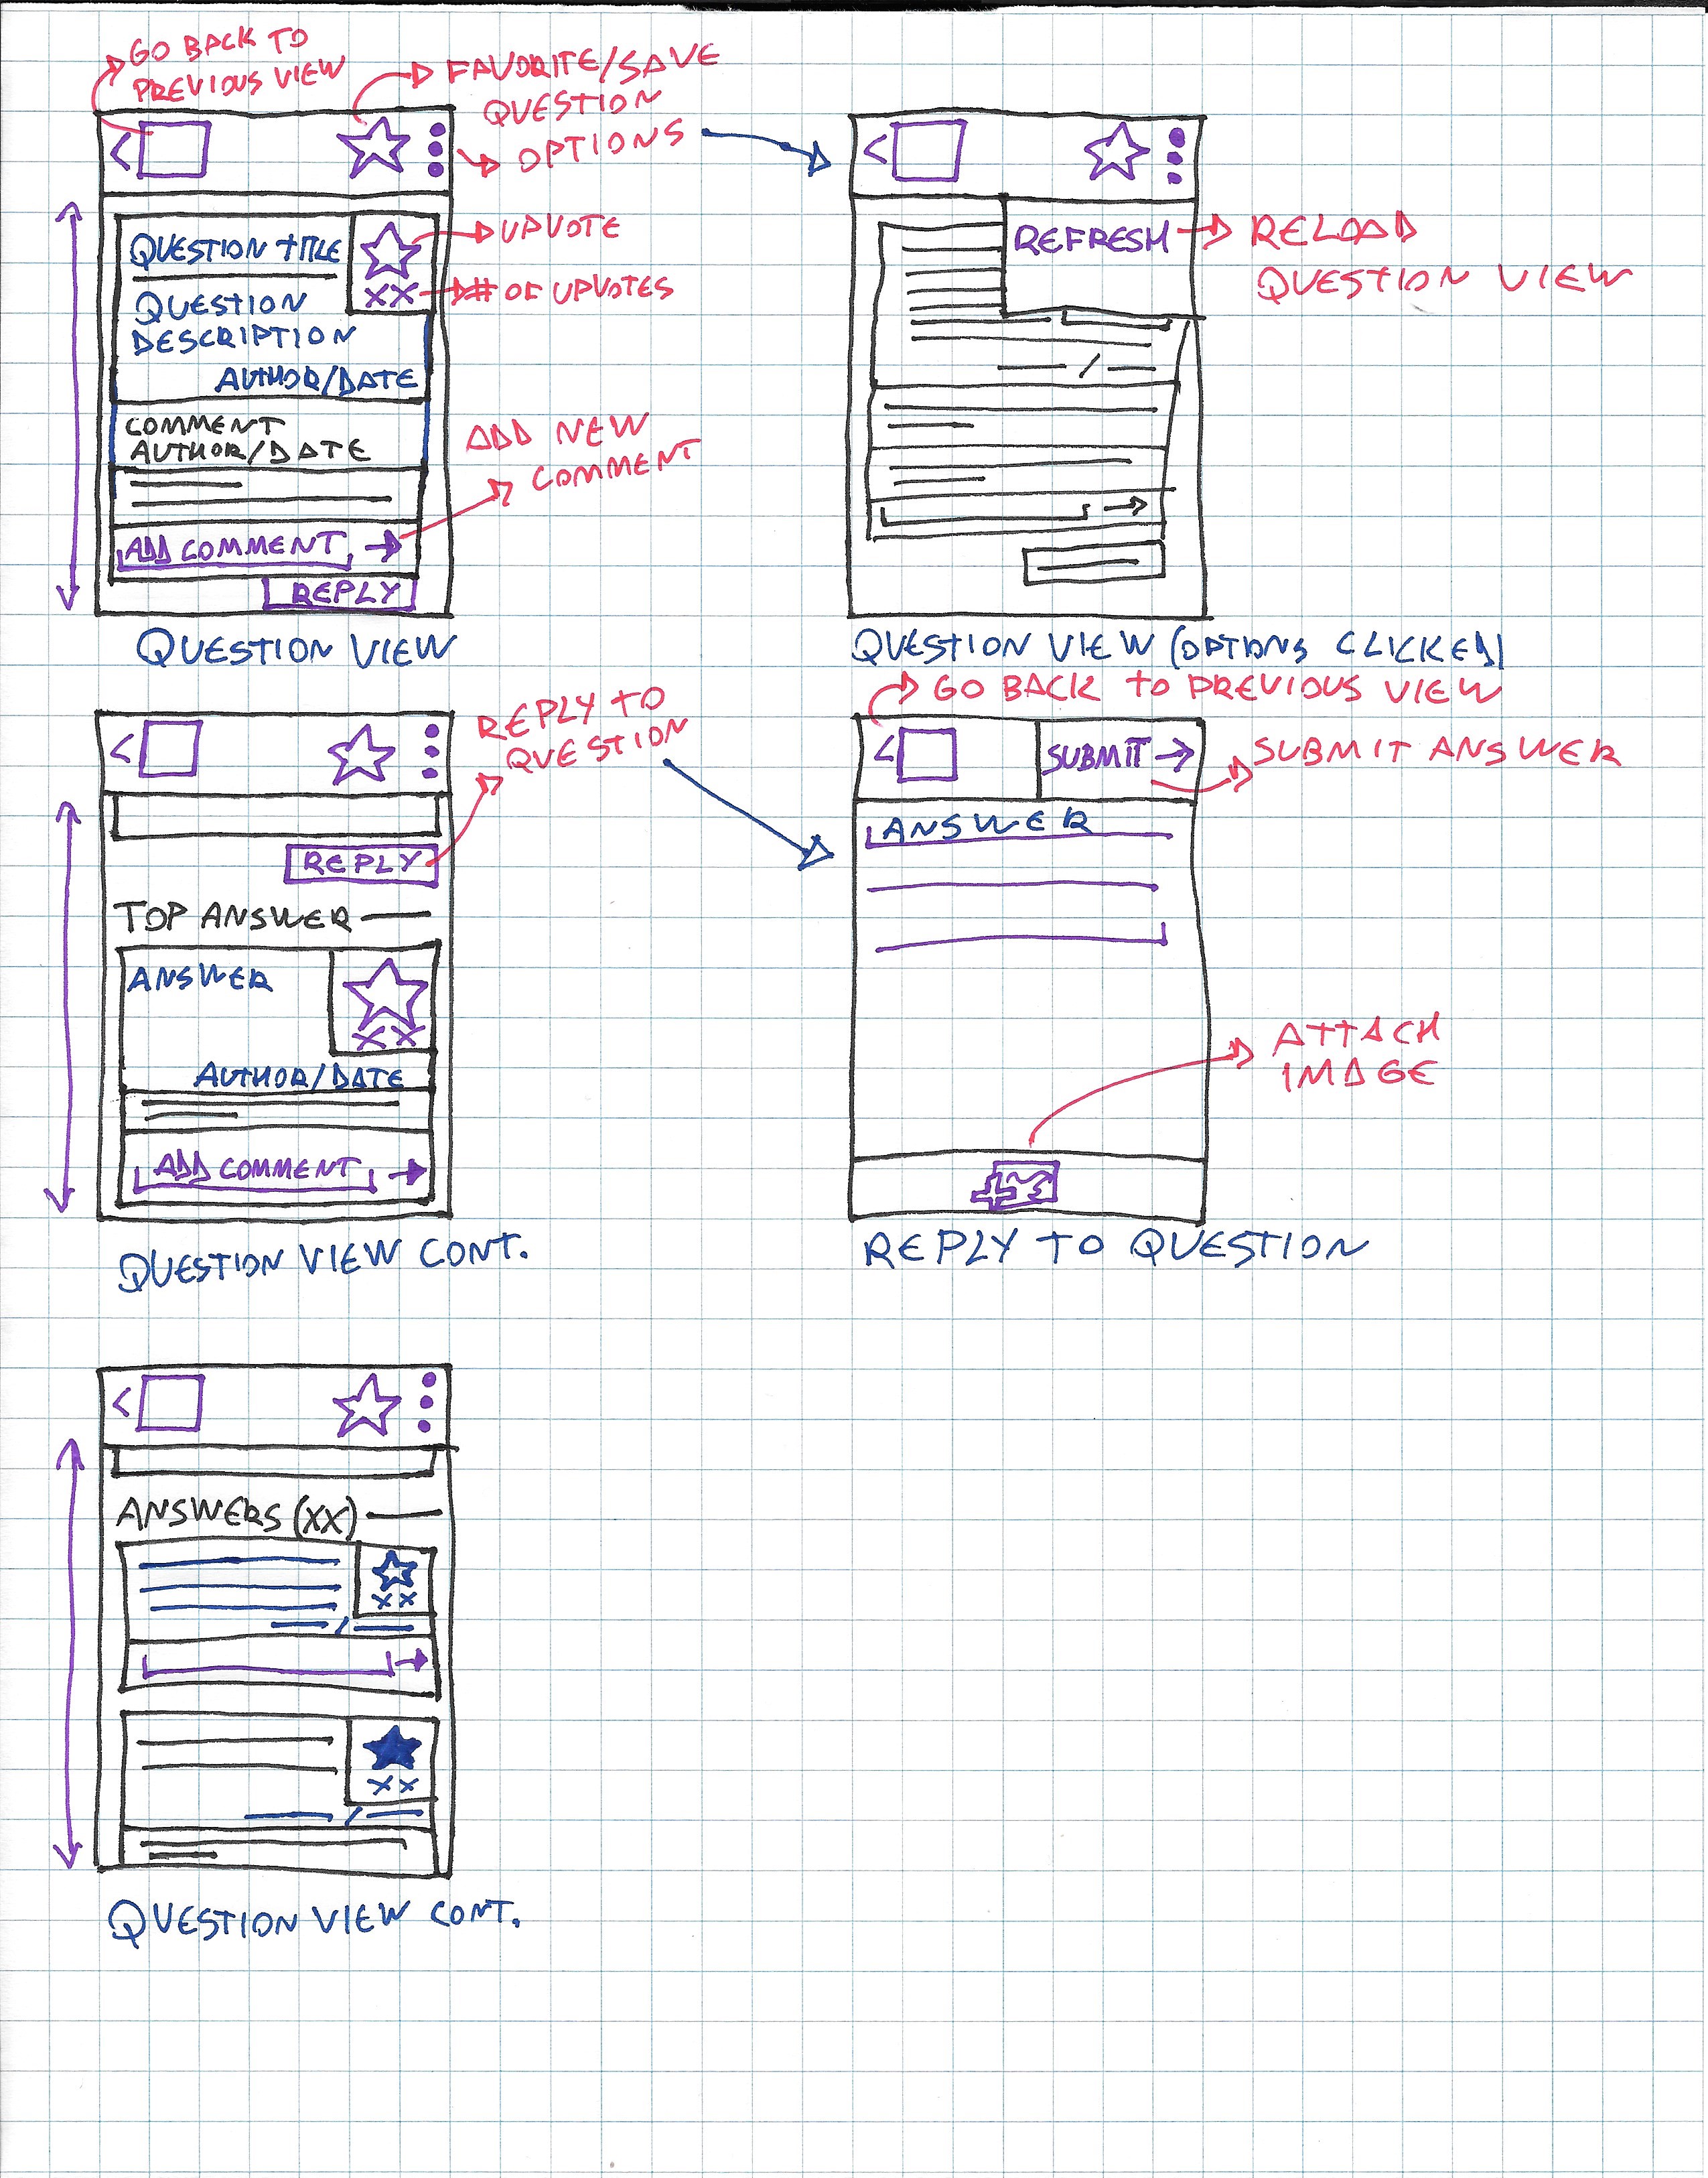 GO BACK TO
PREVIOUS VIEW
FAVORITE/SAVE
QUESTION
OPTIONS
QUESTION TITLE
UPVOTE
XX
# OF UPVOTES
QUESTION
DESCRIPTION
AUTHOR/DATE
COMMENT
AUTHOR/DATE
ADD NEW
COMMENT
ADD COMMENT
REPLY
QUESTION VIEW
REFRESH
RELOAD
QUESTION VIEW
QUESTION VIEW (OPTIONS CLICKED)
REPLY TO
QUESTION
REPLY
TOP ANSWER
ANSWER
XX
AUTHOR/DATE
ADD COMMENT
QUESTION VIEW CONT.
GO BACK TO PREVIOUS VIEW
SUBMIT
SUBMIT ANSWER
ANSWER
ATTACH
IMAGE
REPLY TO QUESTION
ANSWERS (XX)
XX
XX
QUESTION VIEW CONT.